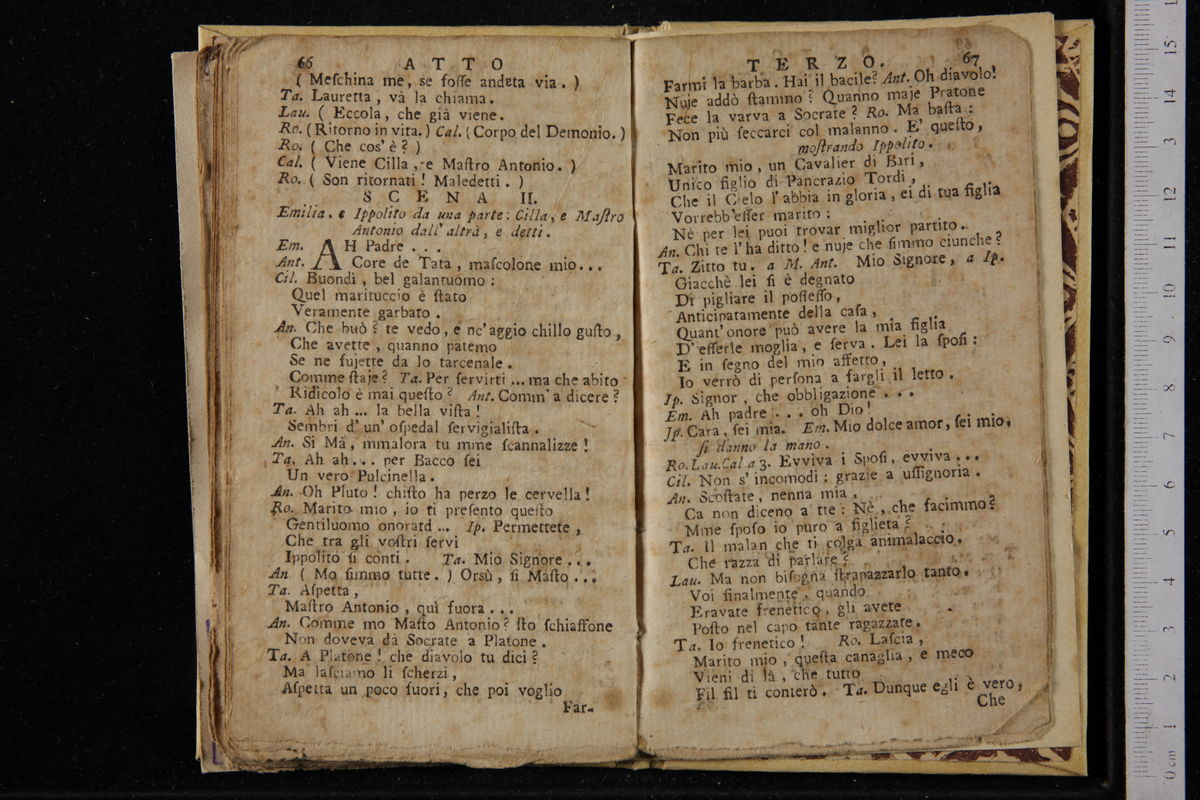 66 ATTO
( Meſchina me, se foſſe andeta via. )
Ta. Lauretta, và la chiama.
Lau. ( Eccola, che già viene.
Ro. (Ritorno in vita.) Cal. (Corpo del Demonio. )
Ro. ( Che cos'è ? )
Cal. ( Viene Cilla, e Maſtro Antonio. )
Ro. ( Son ritornati ! Maledetti. )
SCENA II.
Emilia. e Ippolito da una parte: Cilla, e Maſtro
Antonio dall' altra, e detti.
Em. AH Padre ...
Ant. Core de Tata, maſcolone mio...
Cil. Buondì, bel galantuomo :
Quel marituccio è ſtato
Veramente garbato.
An. Che buò ? te vedo, e nc'aggio chillo guſto,
Che avette, quanno patemo
Se ne fujette da lo tarcenale.
Comme ſtaje ? Ta. Per ſervirti ... ma che abito
Ridicolo è mai queſto ? Ant. Comm' a dicere ?
Ta. Ah ah ... la bella viſta !
Sembri d' un' oſpedal ſervigialiſta.
An. Si Mà, mmalora tu mme ſcannalizze !
Ta. Ah ah... per Bacco ſei
Un vero Pulcinella.
An. Oh Pluto ! chiſto ha perzo le cervella !
Ro. Marito mio, io ti preſento queſto
Gentiluomo onorard ... Ip. Permettete,
Che tra gli voſtri ſervi
Ippolito ſi conti. Ta. Mio Signore ...
An ( Mo ſimmo tutte. ) Orsù, ſi Maſto ...
Ta. Aſpetta,
Maſtro Antonio, quì fuora ...
An. Comme mo Maſto Antonio ? ſto ſchiaffone
Non doveva dà Socrate a Platone.
Ta. A Platone ! che diavolo tu dici ?
Ma laſciamo li ſcherzi,
Aſpetta un poco fuori, che poi voglio
Far-
TERZO. 67
Farmi la barba. Hai il bacile? Ant. Oh diavolo!
Nuje addò ſtammino ? Quanno maje Pratone
Fece la varva a Socrate ? Ro. Ma baſta :
Non più ſeccarci col malanno. E' queſto,
moſtrando Ippolito.
Marito mio, un Cavalier di Bari,
Unico figlio di Pancrazio Tordi,
Che il Cielo l'abbia in gloria, ei di tua figlia
Vorrebb'eſſer marito :
Nè per lei puoi trovar miglior partito..
An. Chi te l'ha ditto ! e nuje che ſimmo ciunche ?
Ta. Zitto tu. a M. Ant. Mio Signore, a Ip.
Giacchè lei ſi è degnato
Di pigliare il poſſeſſo,
Anticipatamente della caſa,
Quant'onore può avere la mia figlia
D'eſſerle moglia, e ſerva. Lei la ſpoſi :
E in ſegno del mio affetto,
Io verrò di perſona a fargli il letto.
Ip. Signor, che obbligazione ...
Em. Ah padre ... oh Dio !
Ip. Cara, ſei mia. Em. Mio dolce amor, ſei mio,
ſi danno la mano.
Ro. Lau. Cal a 3. Evviva i Spoſi, evviva ...
Cil. Non s' incomodi : grazie a uſſignoria.
An. Scoſtate, nenna mia,
Ca non diceno a tte : Nè, che facimmo?
Mme ſpoſo io puro a figlieta ?
Ta. Il malan che ti colga animalaccio.
Che razza di parlare ?
Lau. Ma non biſogna ſtrapazzarlo tanto.
Voi finalmente, quando
Eravate frenetico, gli avete
Poſto nel capo tante ragazzate.
Ta. Io frenetico ! Ro. Laſcia,
Marito mio, queſta canaglia, e meco
Vieni di là, che tutto
Fil fil ti conterò. Ta. Dunque egli è vero,
Che